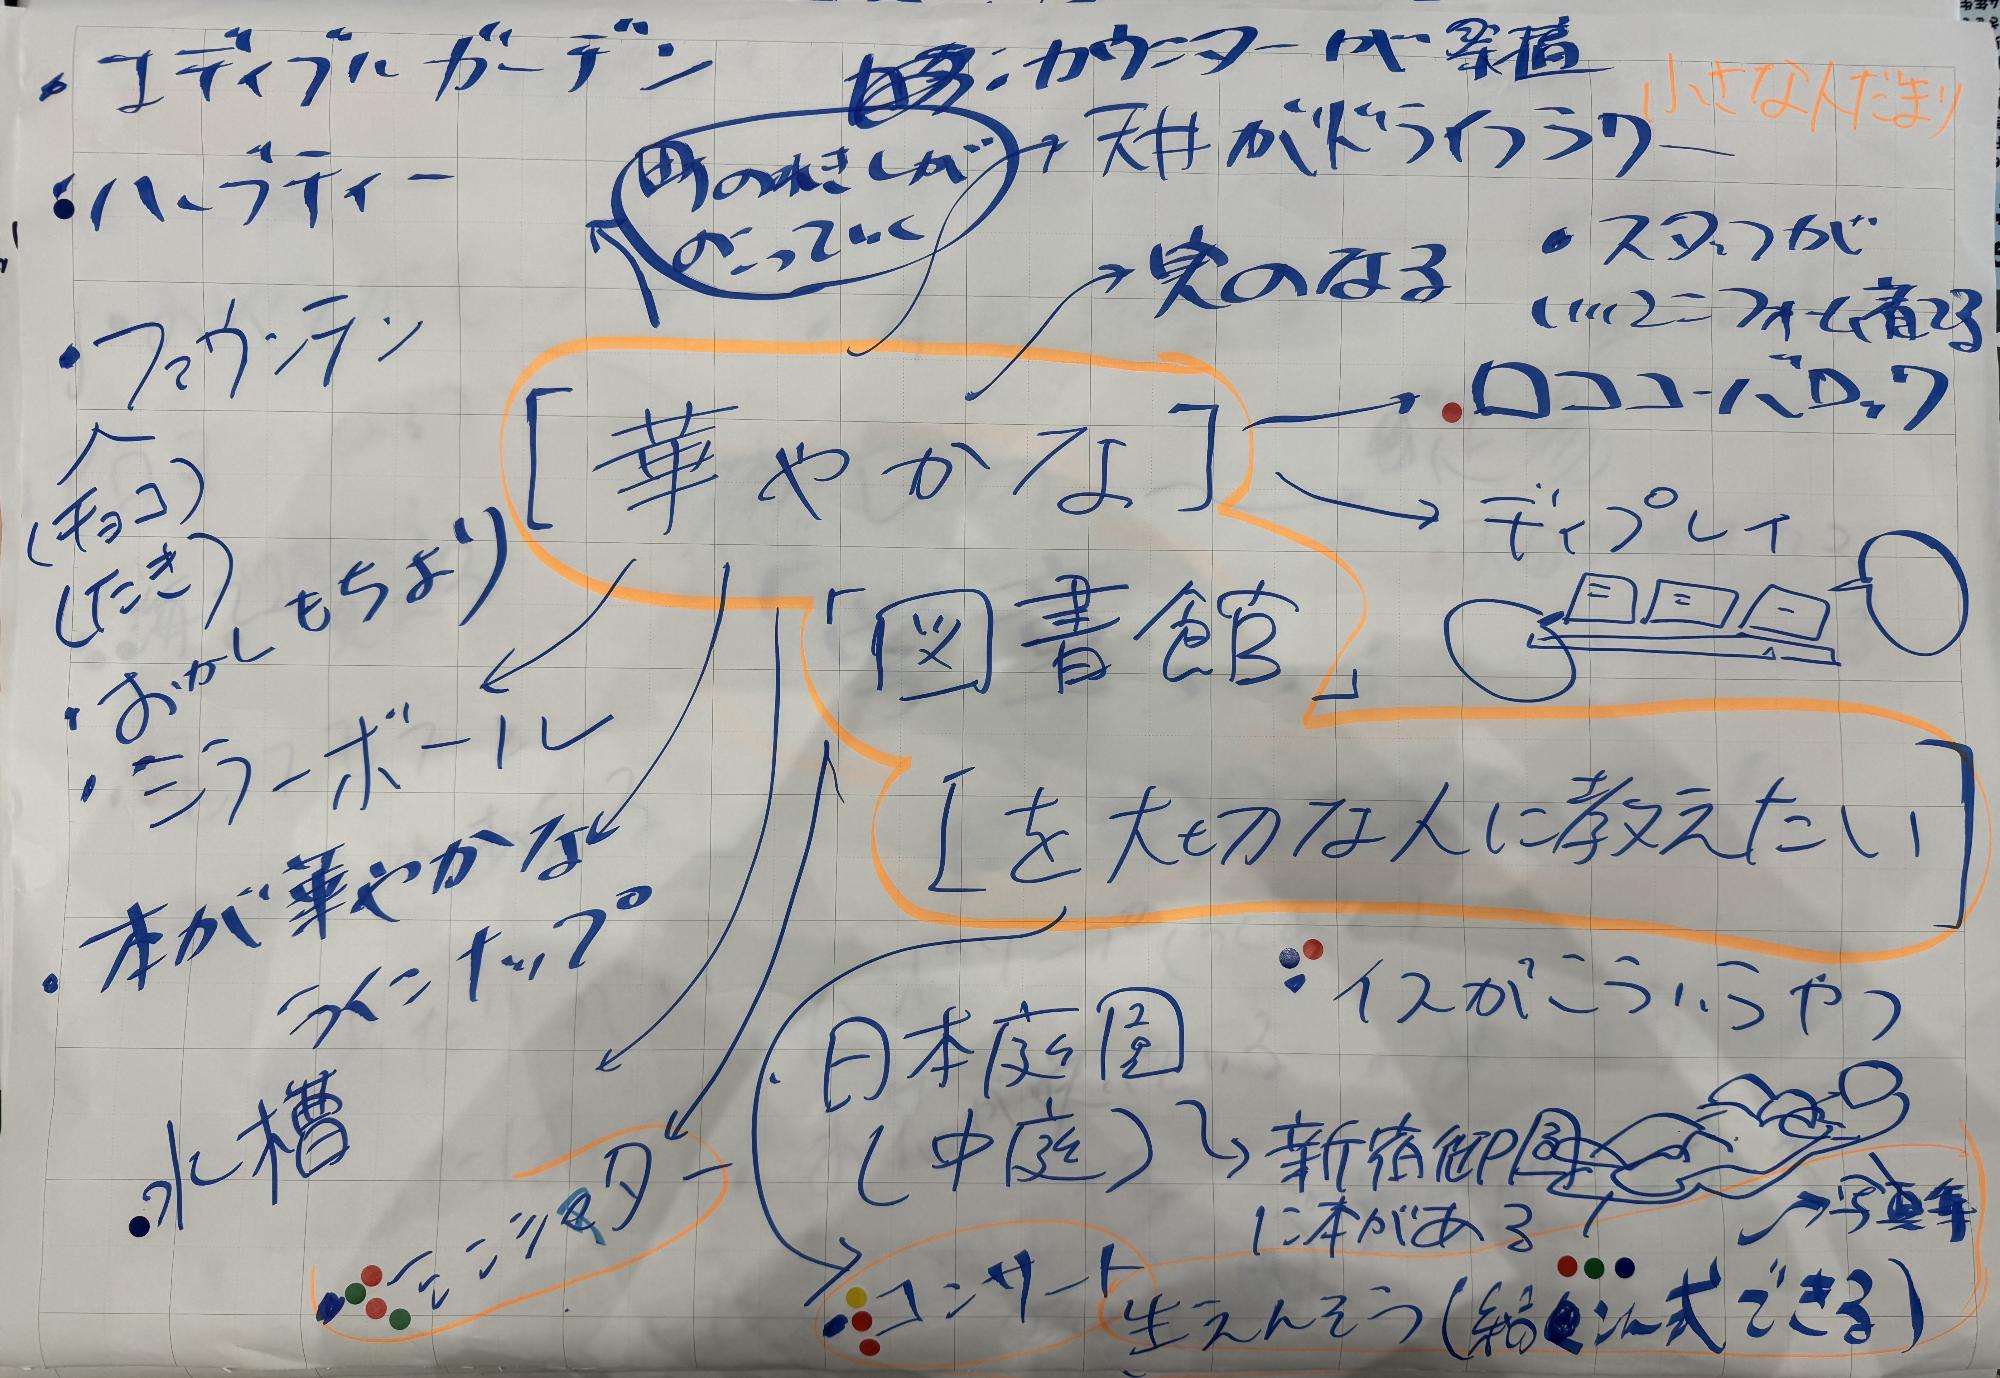 ・エディブルガーデン
・ハーブティー
・ファウンテン
(チョコ)
おかしもちより
・ミラーボール
・本が華やかな
ラインナップ
水槽
カウンターが
町のれきしが
のこっていく
天井がドライフラワー
小さな人だまり
実のなる
・スタッフが
いいユニフォーム着てる
ロココ・バロック
ディプレイ
[華やかな]
「図書館」
[を大切な人に教えたい]
・イスがこういうやつ
・日本庭園
(中庭)
新宿御園
に本がある
写真集
コンサート
生えんそう(結婚式できる)